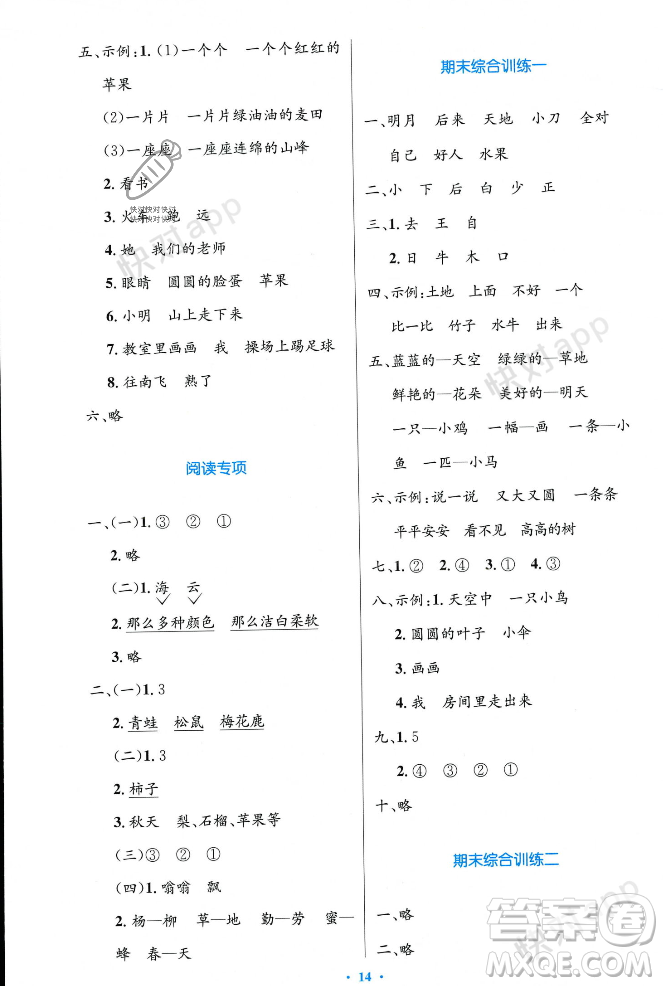 五、示例:1.(1)一个个 一个个红红的
苹果
(2)一片片 一片片绿油油的麦田
(3)一座座 一座座连绵的山峰
2.看书
3.火车 跑 远
4.她 我们的老师
5.眼睛 圆圆的脸蛋 苹果
6.小明 山上走下来
7.教室里画画 我 操场上踢足球
8.往南飞 熟了
六、略
阅读专项
一、(一)1.③ ② ①
2.略
(二)1.海 云
2.那么多种颜色 那么洁白柔软
3.略
二、(一)1.3
2.青蛙 松鼠 梅花鹿
(二)1.3
2.柿子
3.秋天 梨、石榴、苹果等
(三)③ ② ①
(四)1.嗡嗡 飘
2.杨—柳 草—地 勤—劳 蜜—
蜂 春—天
期末综合训练一
一、明月 后来 天地 小刀 全对
自己 好人 水果
二、小 下 后 白 少 正
三、1.去 王 自
2.日 牛 木 口
四、示例:土地 上面 不好 一个
比一比 竹子 水牛 出来
五、蓝蓝的—天空 绿绿的—草地
鲜艳的—花朵 美好的—明天
一只—小鸡 一幅—画 一条—小
鱼 一匹—小马
六、示例:说一说 又大又圆 一条条
平平安安 看不见 高高的树
七、1.② 2.④ 3.① 4.③
八、示例:1.天空中 一只小鸟
2.圆圆的叶子 小伞
3.画画
4.我 房间里走出来
九、1.5
2.④ ③ ② ①
十、略
期末综合训练二
一、略
二、略
14
快对快对快对
快对快对快对
快对app
快对app
快对app
快对app
答案圈
MXQE.COM